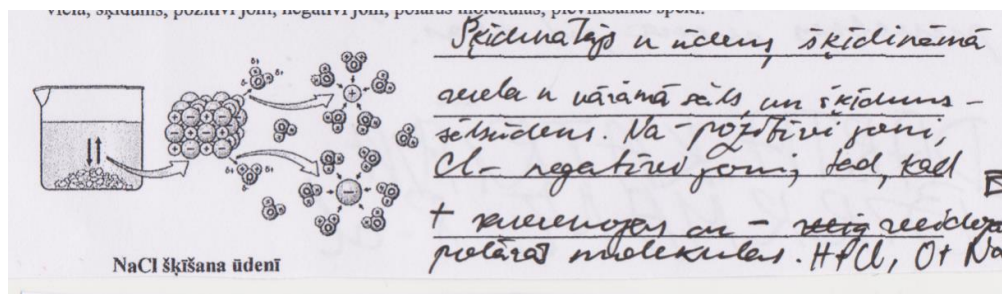 viela, šķīdums, pozitīvi joni, negatīvi joni, polāras molekulas, pievilkšanās spēki.
Šķīdinātājs ir ūdens, šķīdināmā
viela ir vārāmā sāls, un šķīdums -
sālsūdens. Na - pozitīvi joni,
Cl - negatīvi joni, tad, kad
+ savienojas ar - veidojas
polāras molekulas. H+Cl, O+Na
δ+
δ-
NaCl šķīšana ūdenī